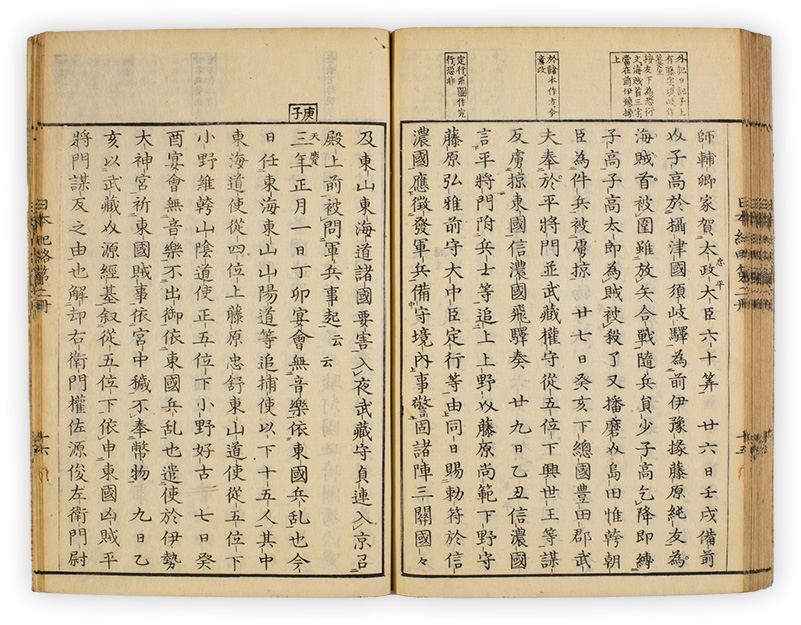 外記日記子上
有藤字須岐作
葦屋
按友下為恐衍
文海賊首三字
當在前伊豫掾
上
於諸本作方今
意改
定行系圖作完
行恐非
師輔卿家賀太政大臣忠平六十算 廿六日壬戌備前
以子高於攝津國須岐驛為前伊豫掾藤原純友為
海賊首被圍雖放矢合戰隨兵員少子高乞降即縛
子高子高太郎為賊被殺了又播磨以島田惟幹朝
臣為件兵被虜掠 廿七日癸亥下總國豐田郡武
夫奉於平將門並武藏權守從五位下興世王等謀
反虜掠東國信濃國飛驛奏 廿九日乙丑信濃國
言平將門附兵士等追上上野以藤原尚範下野守
藤原弘雅前守大中臣定行等由同日賜勅符於信
濃國應徵發軍兵備守境內事警固諸陣三關國々
日本紀略第二冊
十五
庚子
及東山東海道諸國要害入夜武藏守貞連入京召
殿上前被問軍兵事起云云
天慶三年正月一日丁卯宴會無音樂依東國兵乱也今
日任東海東山山陽道等追捕使以下十五人其中
東海道使從四位上藤原忠舒東山道使從五位下
小野維幹山陰道使正五位下小野好古 七日癸
酉宴會無音樂不出御依東國兵乱也遣使於伊勢
大神宮祈東國賊事依宮中穢不奉幣物 九日乙
亥以武藏以源經基叙從五位下依申東國凶賊平
將門謀反之由也解却右衛門權佐源俊左衛門尉
日本紀略第二冊
十六